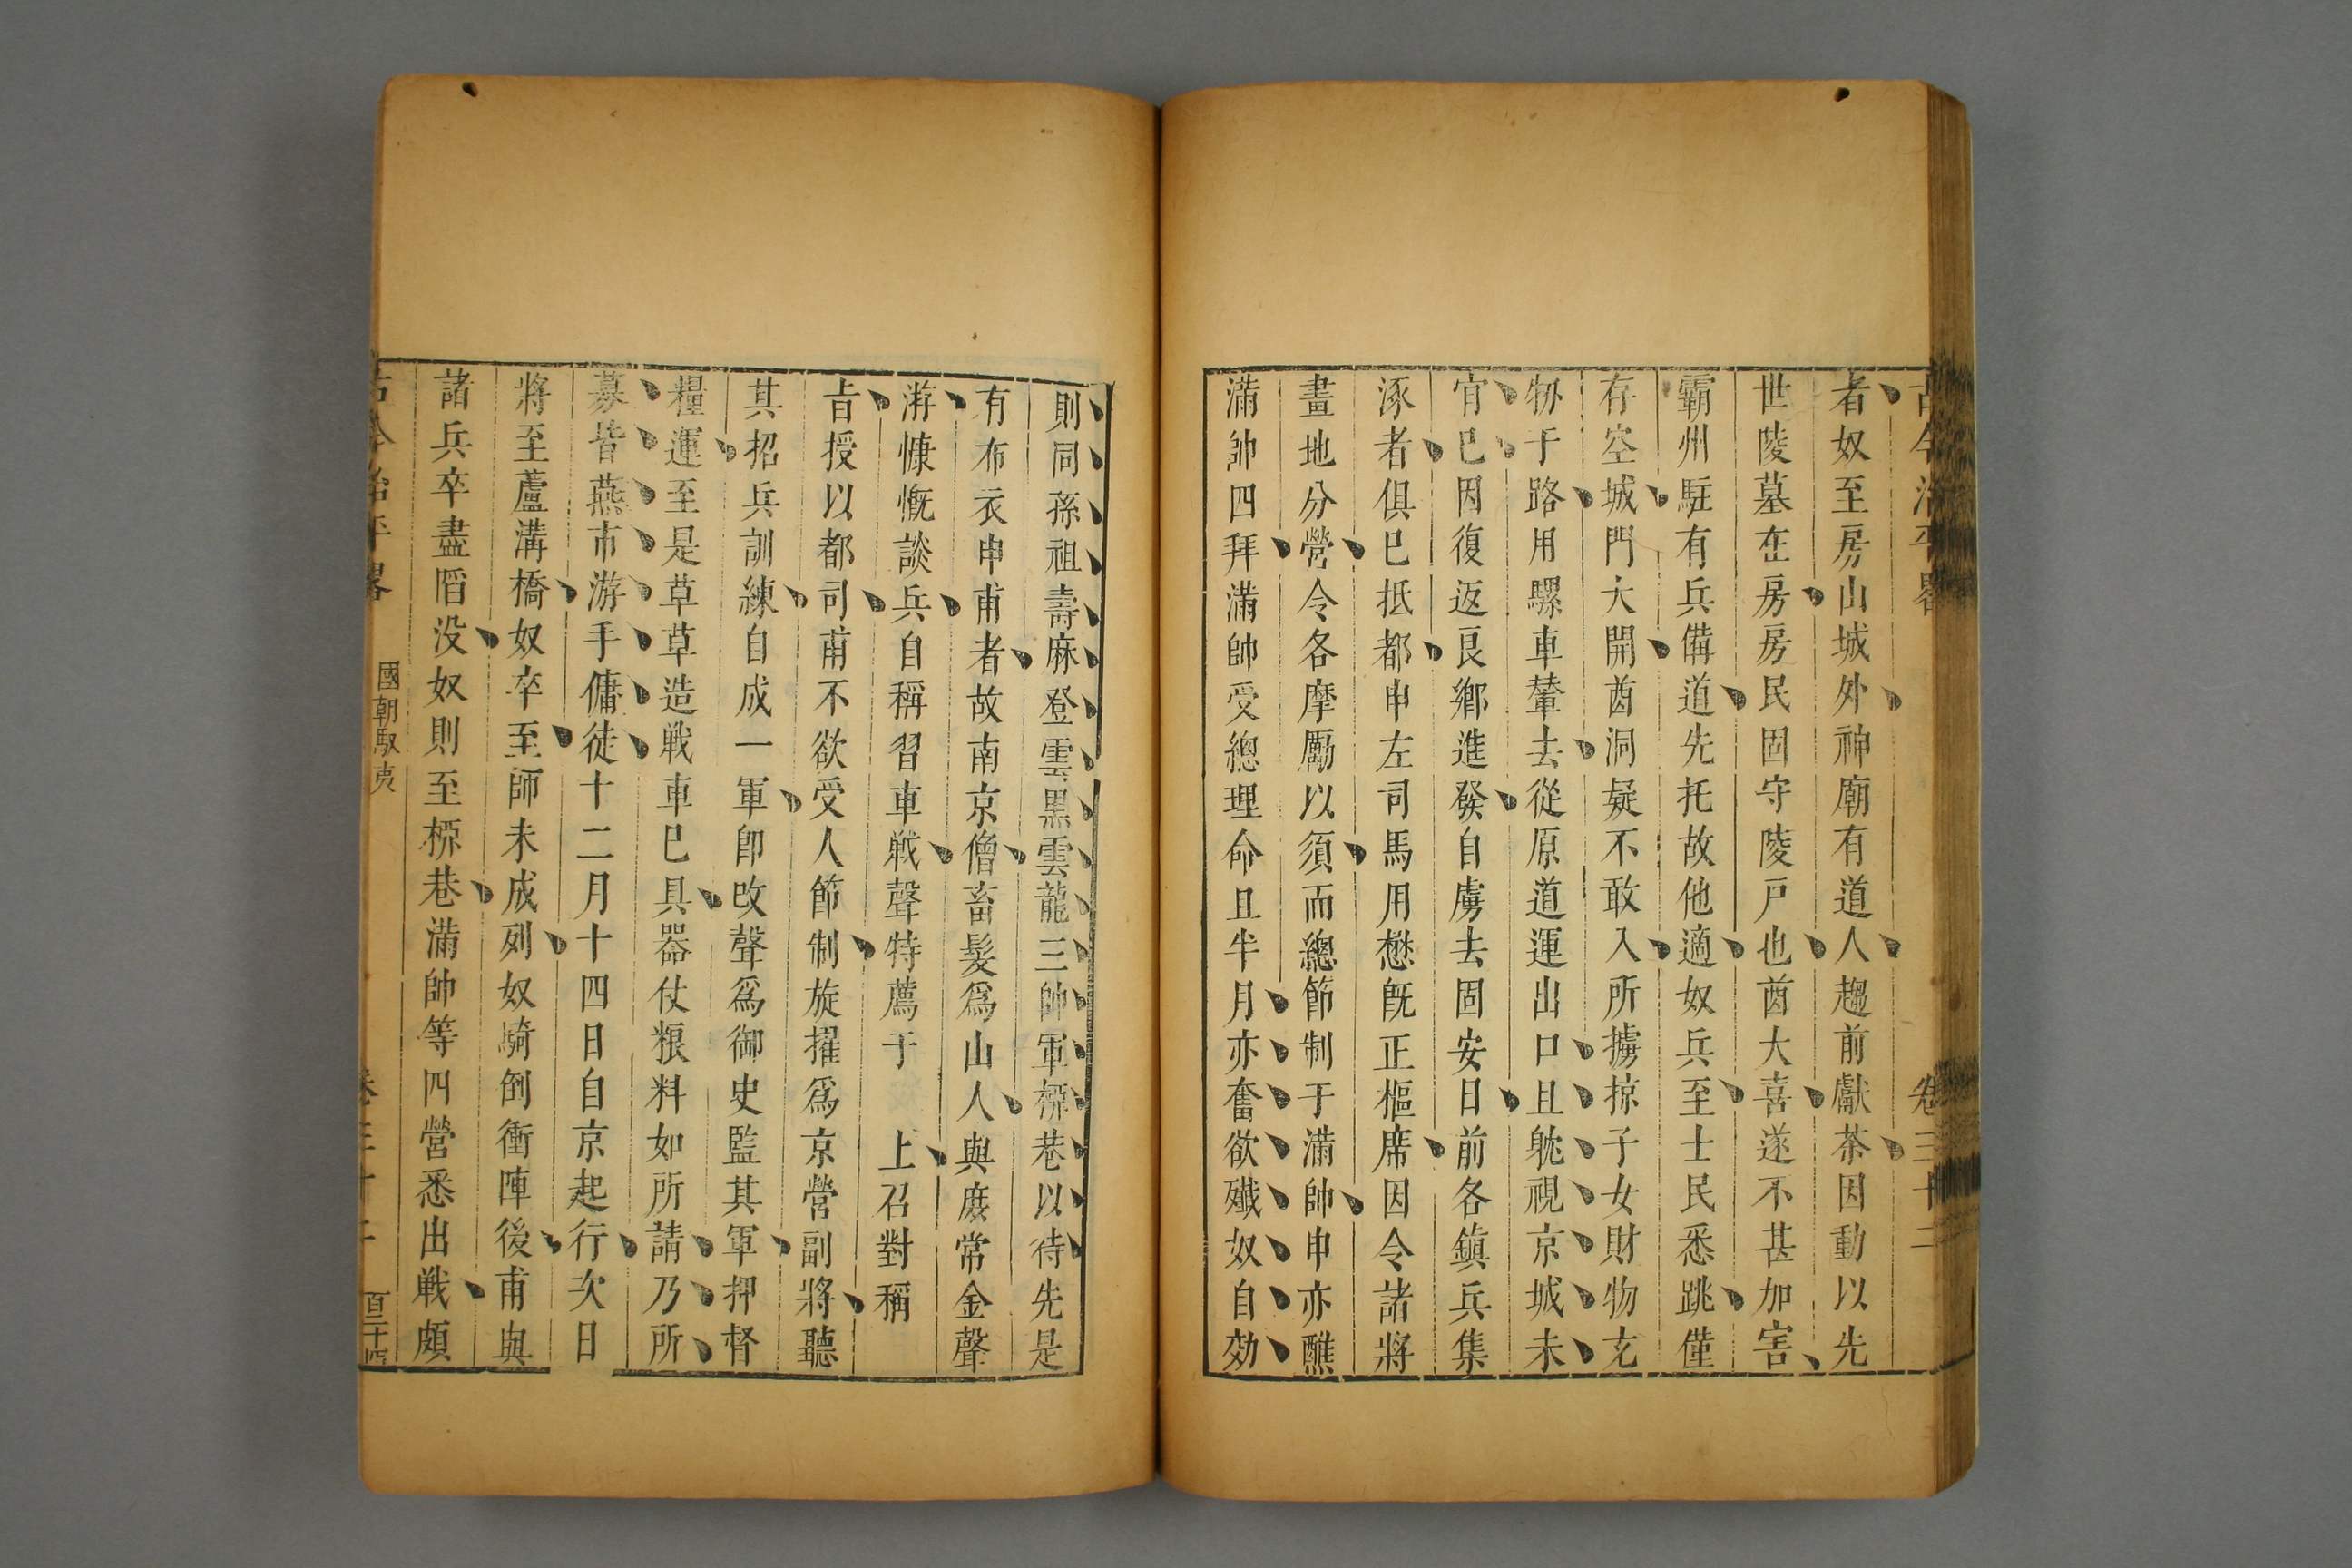 古今治平畧 卷三十二
者奴至房山城外神廟有道人趨前獻茶因動以先
世陵墓在房房民固守陵戸也酋大喜遂不甚加害
霸州駐有兵備道先托故他適奴兵至士民悉跳僅
存空城門大開酋洞疑不敢入所擄掠子女財物充
牣于路用騾車輦去從原道運出口且眺視京城未
宵巳因復返良鄉進發自虜去固安日前各鎮兵集
涿者俱巳抵都申左司馬用懋旣正樞席因令諸將
畫地分營令各摩勵以須而總節制于滿帥申亦醮
滿帥四拜滿帥受總理命且半月亦奮欲殲奴自効
則同孫祖壽麻登雲黑雲龍三帥軍栁巷以待先是
有布衣申甫者故南京僧畜髮爲山人與庻常金聲
游慷慨談兵自稱習車戰聲特薦于 上召對稱
㫖授以都司甫不欲受人節制旋擢爲京營副將聽
其招兵訓練自成一軍卽改聲爲御史監其軍押督
糧運至是草草造戰車巳具器仗粮料如所請乃所
募皆燕市游手傭徒十二月十四日自京起行次日
將至蘆溝橋奴卒至師未成列奴騎倒衝陣後甫與
諸兵卒盡䧟没奴則至栁巷滿帥等四營悉出戰頗
古今治平畧 國朝馭夷